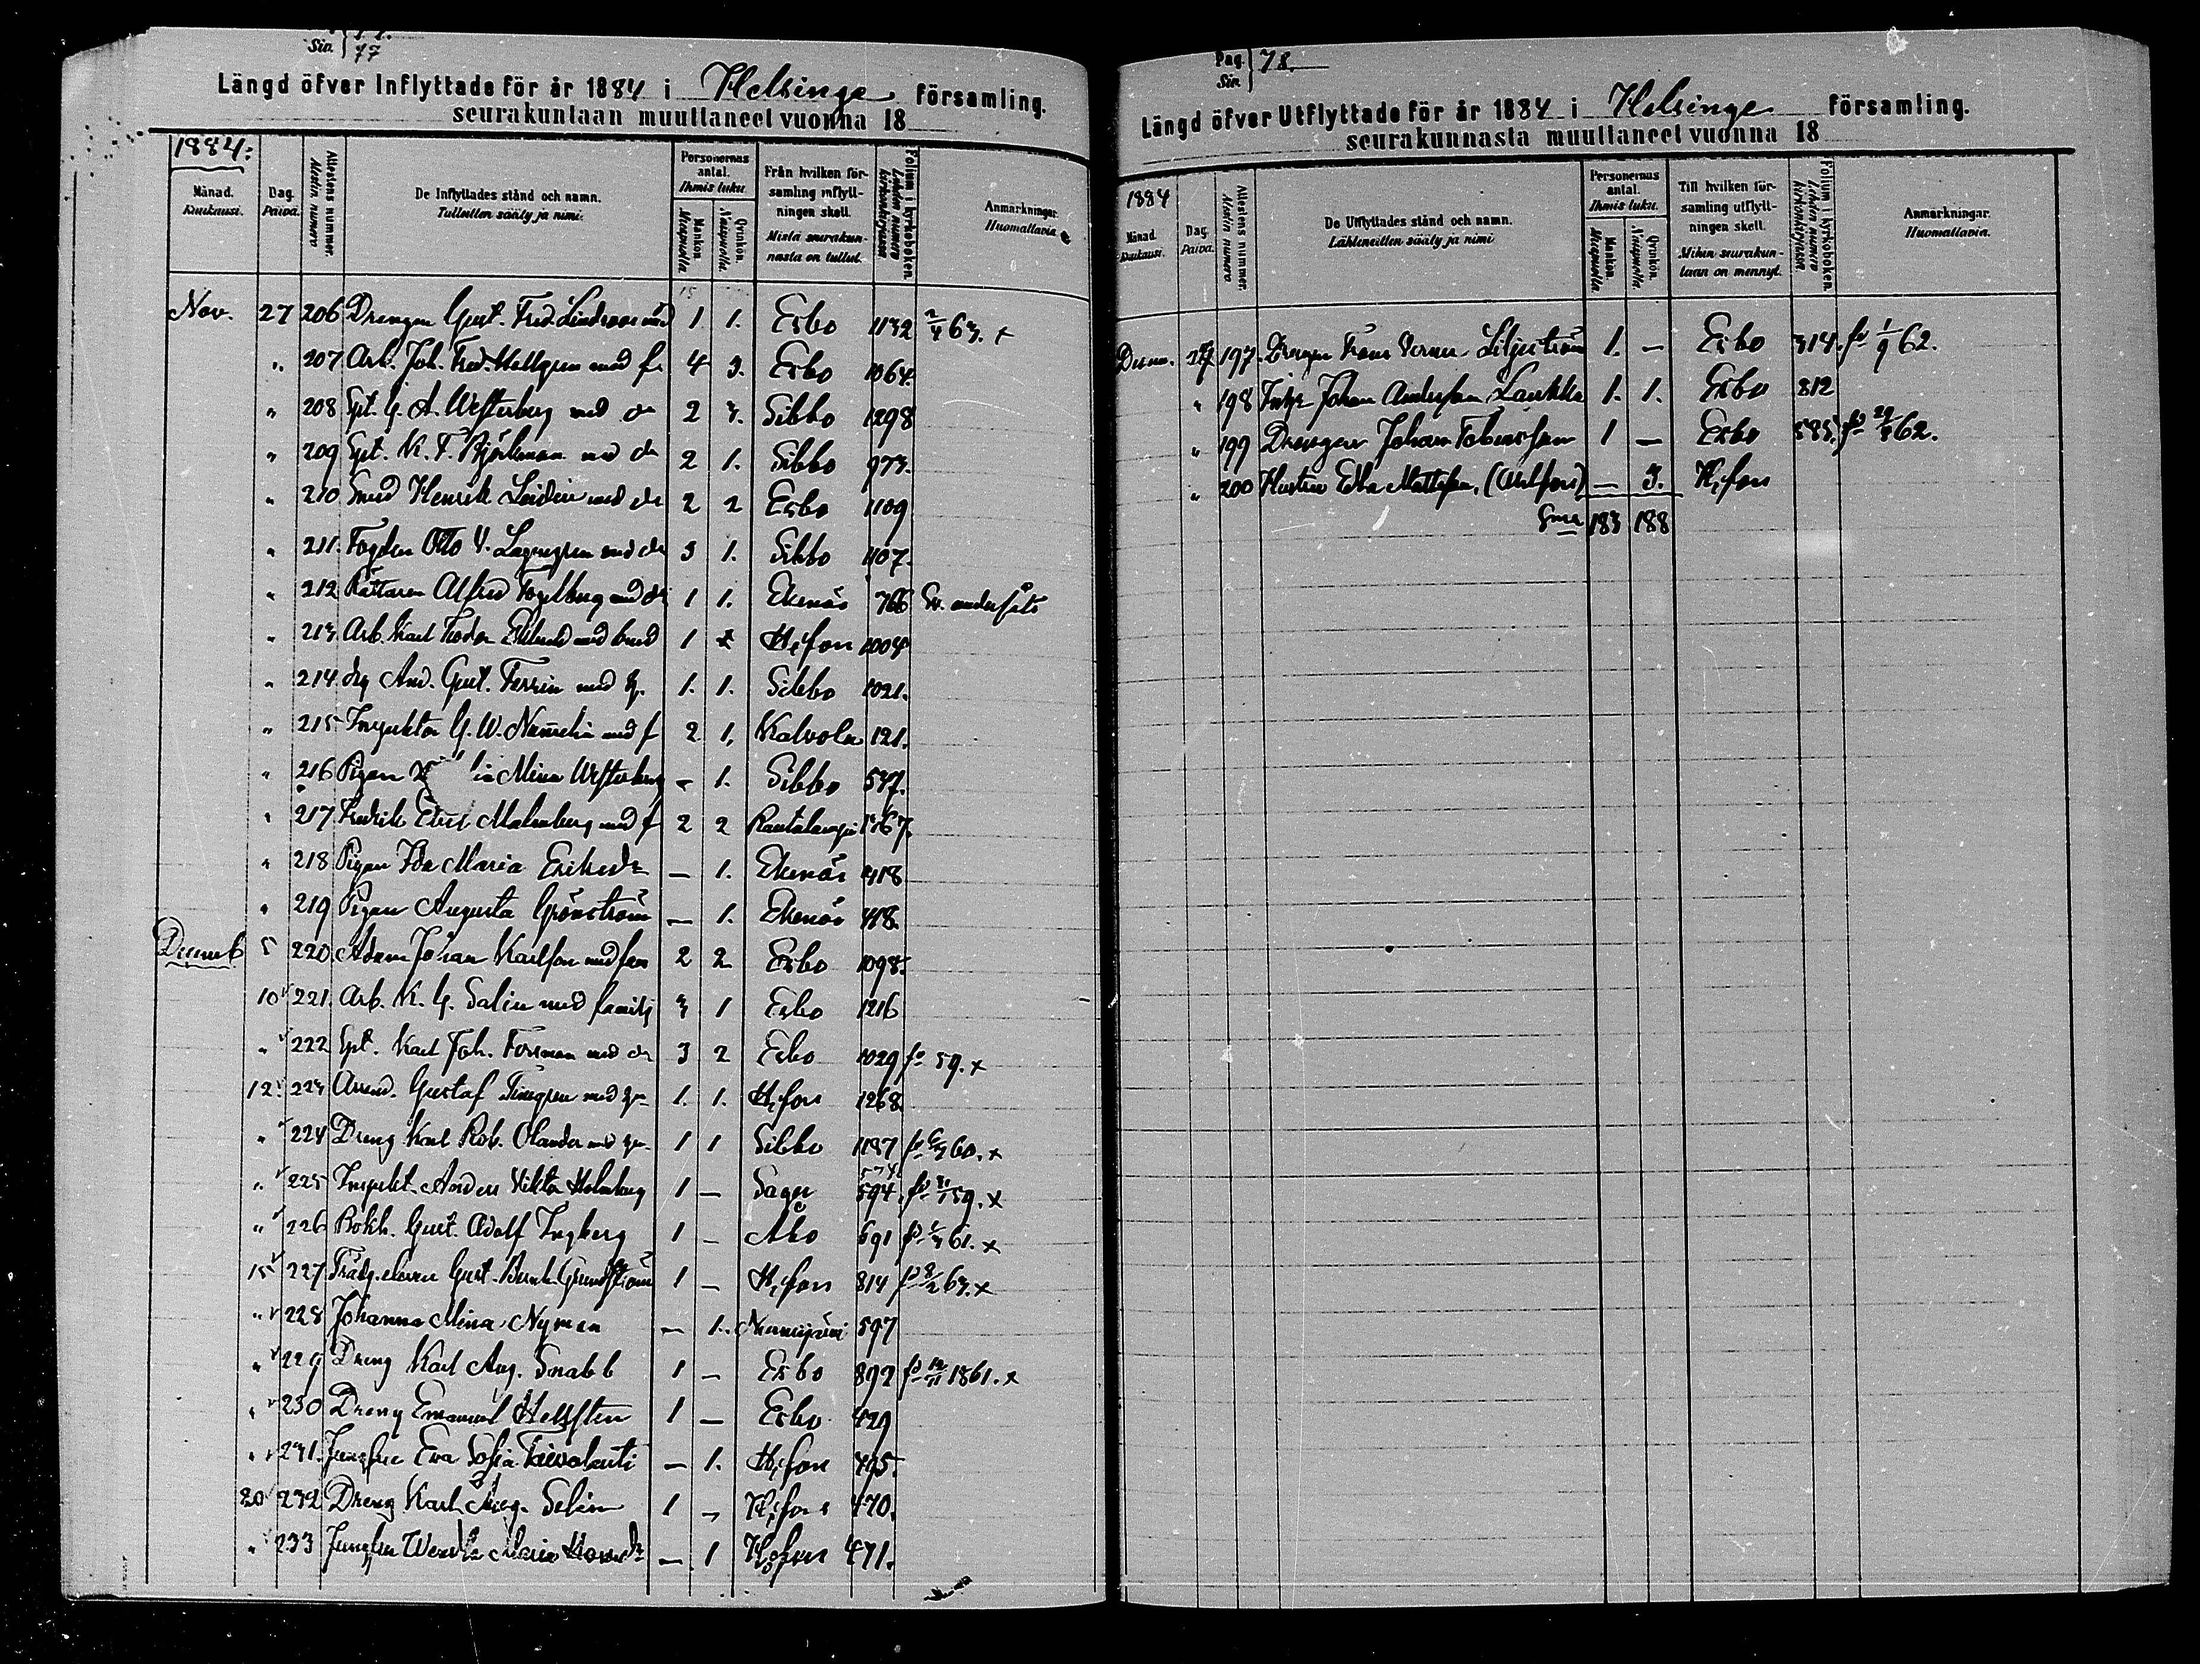 Siv. 77
Längd öfver Inflyttade för år 1884 i Helsinge församling.
seurakuntaan muuttaneet vuonna 18
1884.
Månad. Kuukausi.
Dag. Päivä.
Attestens nummer. Alestin numero
De Inflyttades stånd och namn. Tulleitten sääty ja nimi.
Personernas antal. Ihmis luku.
Mankön. Miespuolia.
Qvinkön. Naispuolia.
Från hvilken församling inflyttningen skett. Mistä seurakunnasta on tullut.
Folium i kyrkoboken. Lehden numero kirkonkirjassa
Anmärkningar. Huomattavia.
Nov. 27 206 Drengen Gust. Fred. Lindroos med 1. 1. Esbo 1132 63. +
" 207 Arb. Joh. Fred. Hallgren med f. 4 3. Esbo 1064.
" 208 Spt. G. A. Westerberg med 2 3. Sibbo 1298
" 209 Spt. K. F. Björkman med 2 1. Sibbo 973.
" 210 Smed Henrik Lindin med 2 2 Esbo 1109
" 211. Fogden Otto V. Lagergren med 3 1. Sibbo 1107.
" 212 Rättaren Alfred Fogelberg med 1 1. Ekenäs 766 Sv. undersåte
" 213 Arb. Karl Fredor Eklund med 1 H:fors 1004
" 214 drg And. Gust. Forsin med 1. 1. Sibbo 1021.
" 215 Inspektor G. W. med f 2 1. Kalvola 121.
" 216 Pigan Mina Westerberg - 1. Sibbo 537.
" 217 Fredrik Malmberg med f 2 2 Rautalampi 1367
" 218 Pigan Ida Maria Eriksdr — 1. Ekenäs 418
" 219 Pigan Augusta Grönström — 1. Ekenäs 418.
Decemb 5 220 Adam Johan Karlson med fam 2 2 Esbo 1098.
10 221. Arb. K. G. Salin med familj 3 1 Esbo 1216
" 222 Spt. Karl Joh. Forsman med 3 2 Esbo 1029 59. +
12 223 Arrend. Gustaf med 1. 1. H:fors 1268.
" 224 Dreng Karl Rob. Olander med 1 1 Sibbo 1187 60. +
" 225 Inspekt. Anders Viktor Holmberg 1 — Sagu 594. 59. +
" 226 Bokh. Gust. Adolf Ingberg 1 — Åbo 691 61. +
15 227 Trädg. eleven Gust. Bernh. Grundström 1 — H:fors 814 63. +
" 228 Johanna Mina Nyman — 1. Nurmijärvi 597
" 229 Dreng Karl Aug. Snabb 1 — Esbo 892 1861. +
" 230 Dreng Emanuel Hellsten 1 — Esbo 429
" 231. Jungfru Eva Sofia — 1. H:fors 495.
20 232 Dreng Karl Aug. Selin 1 — H:fors 470.
" 233 Jungfru Wendla Maria — 1 H:fors 471.
Pag. Siv. 78.
Längd öfver Utflyttade för år 1884 i Helsinge församling.
seurakunnasta muuttaneet vuonna 18
1884
Månad. Kuukausi.
Dag. Päivä.
Attestens nummer. Alestin numero
De Utflyttades stånd och namn. Lähteneitten sääty ja nimi
Personernas antal. Ihmis luku.
Mankön. Miespuolia.
Qvinkön. Naispuolia
Till hvilken församling utflyttningen skett. Mihin seurakuntaan on mennyt.
Folium i kyrkoboken. Lehden numero kirkonkirjassa
Anmärkningar. Huomattavia.
Decem. 27 197 Drengen Frans Verner Liljeström 1. — Esbo 314. 1/9 62.
" 198 Johan Andersson Laukka 1. 1. Esbo 812
" 199 Drengen Johan Tobiasson 1 — Esbo 585. 62.
" 200 Hustru Edla Mattsson, — 3. H:fors
Sma 183 188